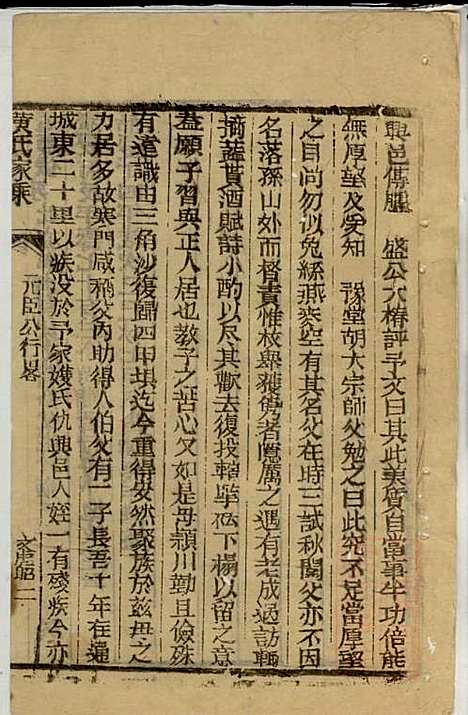 興邑傳臚 盛公大椿評予文曰其此美質自當事半功倍能
無厚望及受知 豫堂胡大宗師父勉之曰此究不足當厚望
之目尚勿以兔絲燕麥空有其名父在時三試秋闈父亦不因
名落孫山外而督責惟校舉穫儁者慰厲之遇有老成過訪輒
摘蔬貰酒賦詩小酌以尽其歡去復投轄下榻以留之意
益願子習與正人居也教子之苦心又如是母潁川勤且儉殊
有遠識由三角沙復歸四甲垻迄今重得安然聚族於茲毋之
力居多故寒門咸稱父芮助得人伯父有一子長吾十年在通
城東二十里以疾没於予家嫂氏仇興邑人姪一有殘疾今亦
黃氏家乘
元臣公行畧
二